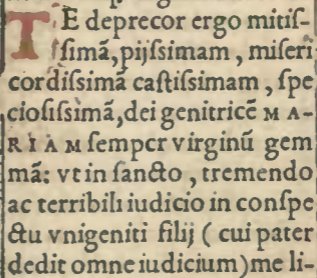 TE deprecor ergo mitiſ-
ſimã, pijſsimam, miſeri
cordiſsimã caſtiſsimam, ſpe
cioſiſsimã, dei genitricẽ MA-
RIAM ſemper virginũ gem
mã: vt in ſancto, tremendo
ac terribili iudicio in conſpe
ctu vnigeniti filij (cui pater
dedit omne iudicium) me li-